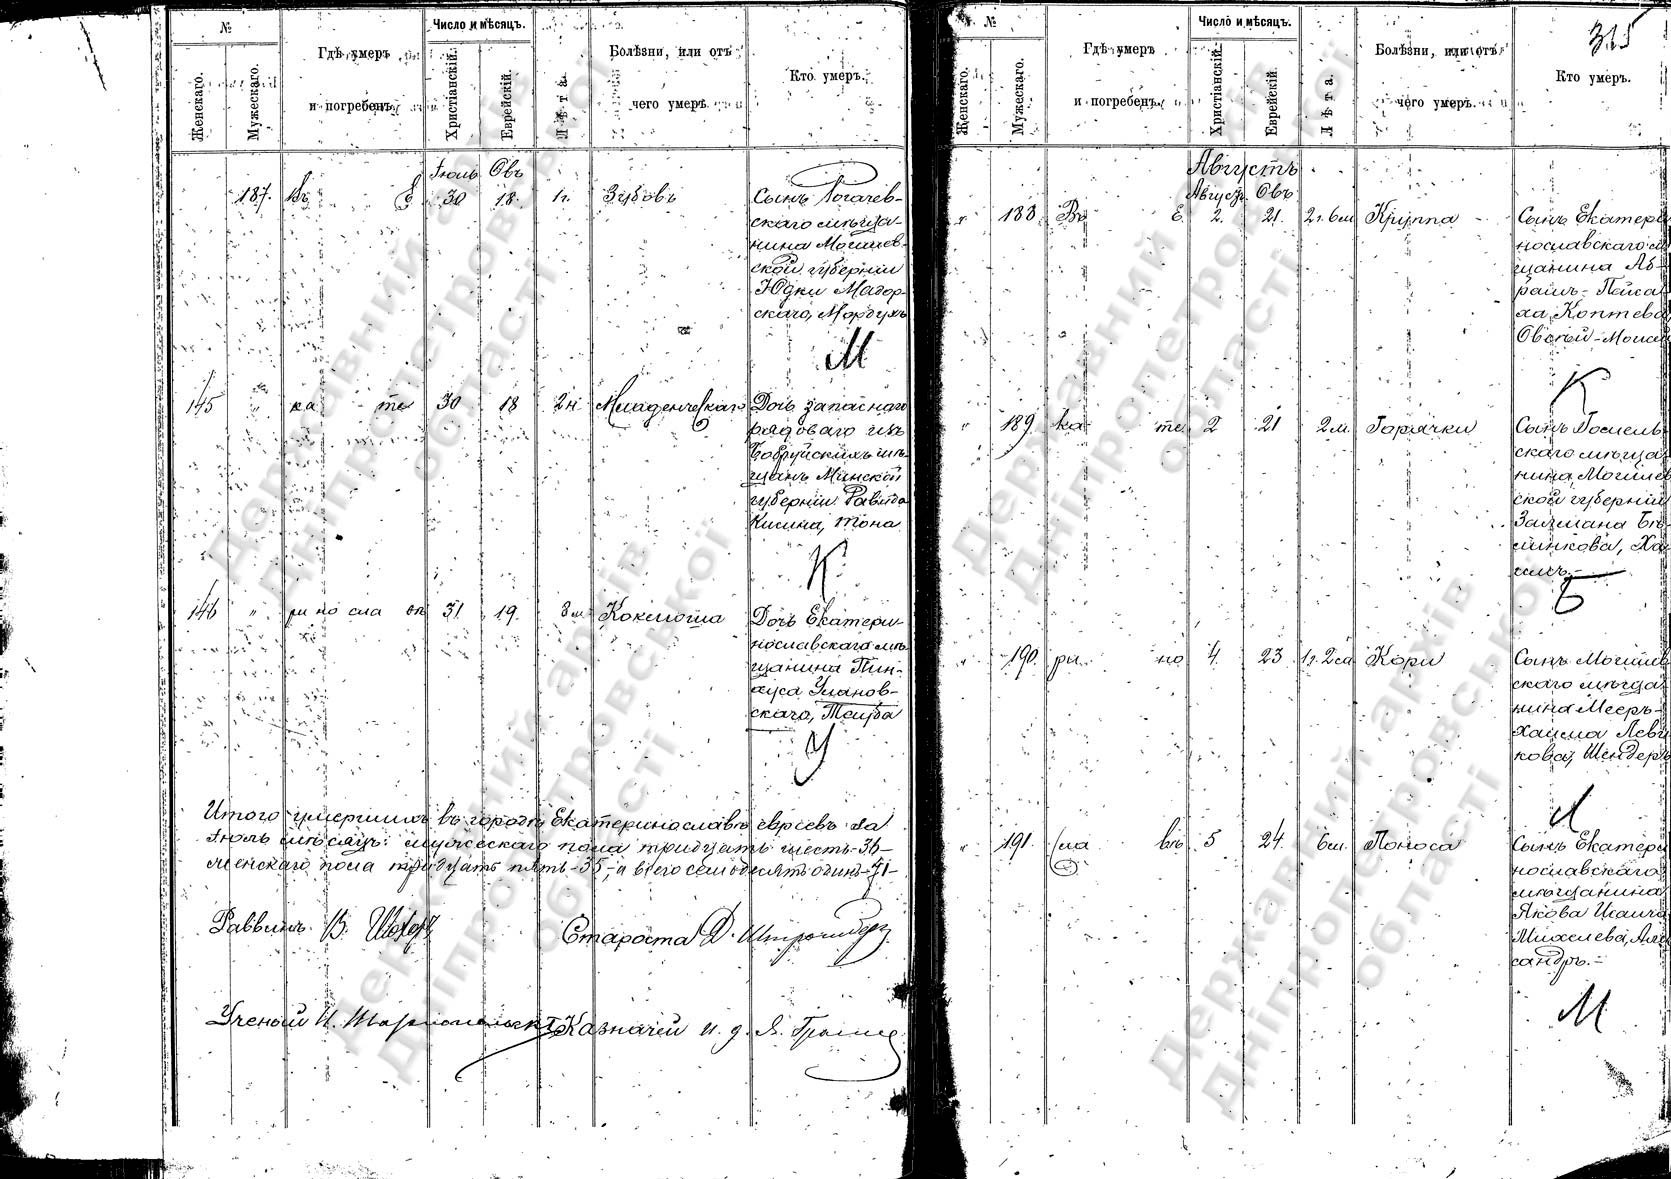 №
Женскаго.
Мужескаго.
Гдѣ умеръ
и погребенъ.
Число и мѣсяцъ.
Христіанскій.
Еврейскій.
Лѣта.
Болѣзни, или отъ
чего умеръ.
Кто умеръ.
Іюль Овъ
187. Въ Е 30 18. 1 г. Зубовъ
Сынъ Рогачев-
скаго мѣща-
нина Могилев-
ской губерніи
Юдки
скаго, Мордухъ
М
145 " ка те 30 18 2 н. Младенческаго
Дочь запаснаго
рядоваго изъ
Бобруйскихъ мѣ-
щанъ Минской
губерніи
Кисина,
К
146 " ри но сла вѣ 31. 19. 8 м. Коклюша
Дочь Екатери-
нославскаго мѣ-
щанина Пин-
хуса Уланов-
скаго, Тауба
У
Итого умершихъ въ городѣ Екатеринославѣ евреевъ за
Іюль мѣсяцъ: мужескаго пола тридцать шесть-36-
женскаго пола тридцать пять-35-, а всего семьдесятъ одинъ-71-
Раввинъ В.
Староста Д.
Ученый И.
Казначей и. д. Я.
315
№
Женскаго.
Мужескаго.
Гдѣ умеръ
и погребенъ.
Число и мѣсяцъ.
Христіанскій.
Еврейскій.
Лѣта.
Болѣзни, или отъ
чего умеръ.
Кто умеръ.
Августъ
Августъ. Овъ
" 188. Въ Е. 2. 21. 2 г. 6 м Круппа
Сынъ Екатери
нославскаго мѣ
щанина Аб-
рамъ-Пейса-
ха Коптева,
Овсей-Моисей
К
" 189. ка те 2 21 2 м. Горячки
Сынъ Гомель-
скаго мѣща-
нина Могилев
ской губерніи
Залмана Бѣ-
линкова, Ха-
имъ.-
Б
" 190. ри но 4. 23 1 г. 2 м Кори
Сынъ Могилев
скаго мѣща-
нина Мееръ-
Хаима Леви
кова, Шендеръ
Л
" 191. сла вѣ 5 24. 6 м. Поноса
Сынъ Екатери
нославскаго
мѣщанина
Якова
Михлева, Алек
сандръ.-
М
Державний архів
Дніпропетровської
області